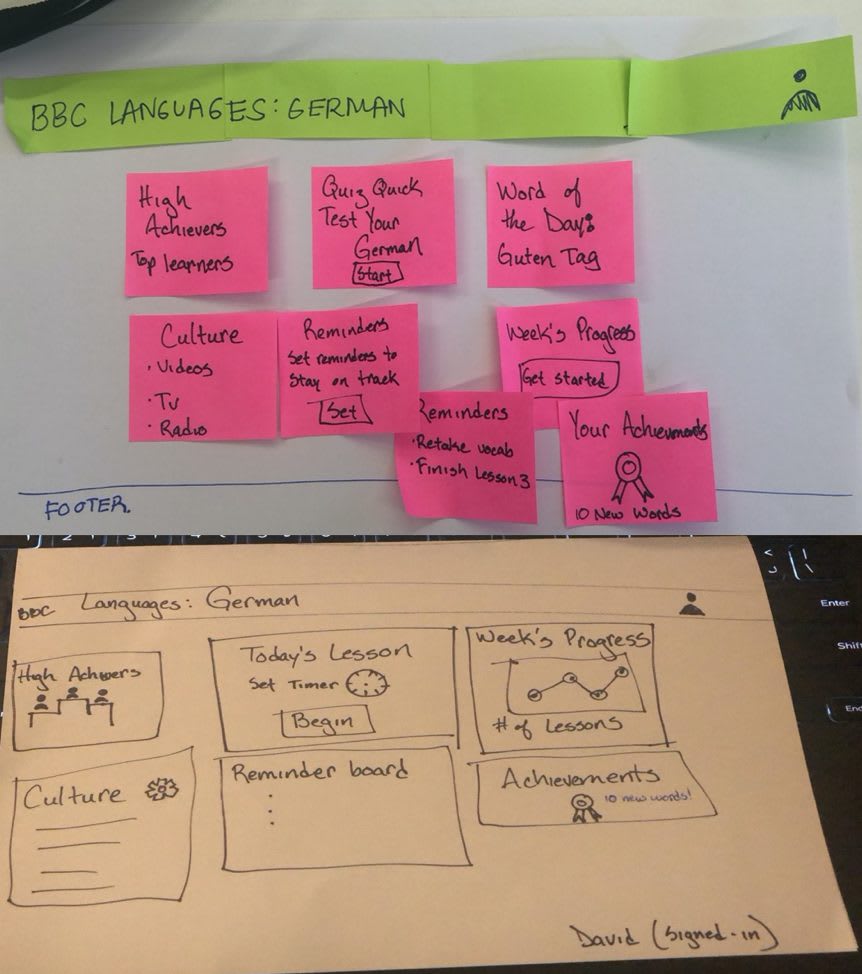 BBC LANGUAGES: GERMAN
High
Achievers
Top learners
Quiz Quick
Test Your
German
Start
Word of
the Day:
Guten Tag
Culture
• Videos
• TV
• Radio
Reminders
Set reminders to
stay on track
Set
Week's Progress
Get started
Reminders
• Retake vocab
• Finish Lesson 3
Your Achievements
10 New Words
FOOTER.
BBC Languages: German
High Achievers
Today's Lesson
Set Timer
Begin
Week's Progress
# of Lessons
Culture
Reminder board
Achievements
10 new words!
David (signed-in)
Enter
Shif
End